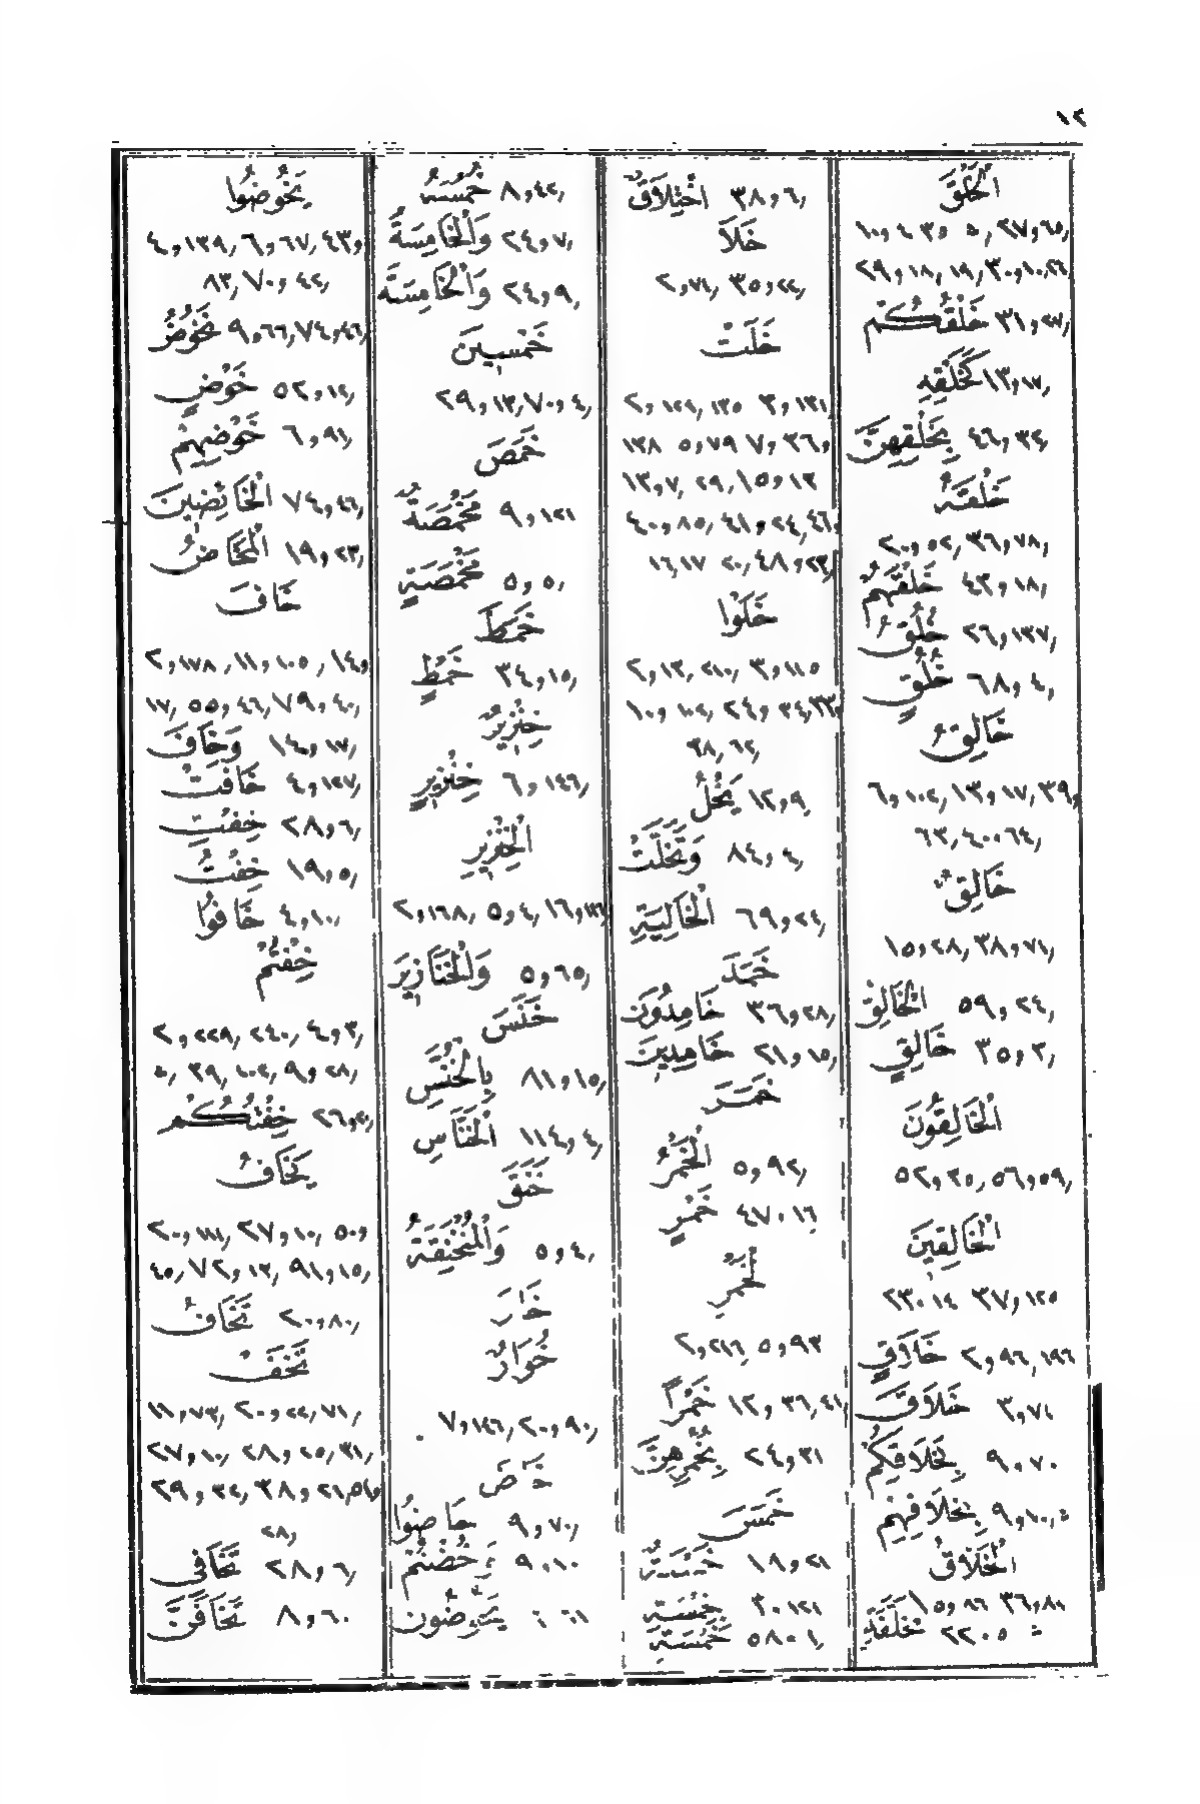 ١٢
اَلْخَلْقَ
٢٩و١٨, ١٩, ٣٠و١٠
خَلْقُكُمْ ٣١و٢٧,
كَخَلْقِهِ ١٣و١٧,
بِخَلْقِهِنَّ ٤٦و٣٤,
خَلْقَهُ
٢٠و٥٢, ٣٦و٧٨,
خَلَقَهُمْ ٤٣و١٨,
خُلُقُ ٢٦و١٣٧,
خُلُقٍ ٦٨و٤,
خَالِقُ
٦و١٠٢, ١٣و١٧, ٣٩و
٦٢, ٤٠و٦٤,
خَالِقٌ
١٥و٢٨, ٣٨و٧١,
اَلْخَالِقُ ٥٩و٢٤,
خَالِقٍ ٣٥و٣,
اَلْخَالِقُونَ
٥٢و٣٥, ٥٦و٥٩,
اَلْخَالِقِينَ
٢٣و١٤ ٣٧و١٢٥
خَلَاقٍ ٢و٩٦,١٩٦
خَلَاقَ ٣و٧٧,
بِخَلَاقِكُمْ ٩و٧٠
بِخَلَاقِهِمْ ٩و١٠,
اَلْخَلَّاقُ
١٥و٨٦ ٣٦و٨١
مُخَلَّقَةٍ ٢٢و٥
اخْتِلَاقٌ ٣٨و٦,
خَلَاَ
٢و٧٤, ٣٥و٢٤,
خَلَتْ
٢و١٢٤, ١٣٥ ٣و١٣١,
و٣٦ ٧و٧٩ ٥و١٣٨
١٣و٧, ٢٩, ١٥و١٣
٤٠و٨٥, ٤١و٢٤,٤٦,
١٦,١٧ ٢٠, ٤٨و٢٣,
خَلَوْا
٢و١٣, ٢١٠, ٣و١١٥
١٠و١٠٢, ٢٤و٣٤,٣٣,
٣٨, ٦٢,
يَخْلُ ١٢و٩,
وَتَخَلَّتْ ٨٤و٤,
اَلْخَالِيَةِ ٦٩و٢٤,
خَمَدَ
خَامِدُونَ ٣٦و٢٨,
خَامِدِينَ ٢١و١٥,
خَمَرَ
اَلْخَمْرُ ٥و٩٢,
خَمْرٍ ٤٧و١٦,
اَلْخَمْرِ
٢و٢١٦, ٥و٩٣
خَمْرًا ١٢و٣٦,٤١,
بِخُمُرِهِنَّ ٢٤و٣١
خَمَسَ
خَمْسَةٌ ١٨و٢١
بِخَمْسَةِ ٣و١٢١
خَمْسَةِ ٥٨و١,
خُمُسَهُ ٨و٤٢,
وَاَلْخَامِسَةُ ٢٤و٧,
وَاَلْخَامِسَةَ ٢٤و٩,
خَمْسِينَ
٢٩و١٣,٧٠و٤,
خَمَصَ
مَخْمَصَةٌ ٩و١٢١
مَخْمَصَةٍ ٥و٥,
خَمَطَ
خَمْطٍ ٣٤و١٥,
خِنْزِيرٌ
خِنْزِيرٍ ٦و١٤٦,
اَلْخِنْزِيرِ
٢و١٦٨, ٥و٤, ١٦و١١٦,
وَاَلْخَنَازِيرَ ٥و٦٥,
خَنَسَ
بِاَلْخُنَّسِ ٨١و١٥,
اَلْخَنَّاسِ ١١٤و٤,
خَنَقَ
وَاَلْمُنْخَنِقَةُ ٥و٤,
خَارَ
خُوَارٌ
٧و١٤٦, ٢٠و٩٠,
خَاضَ
خَاضُوا ٩و٧٠,
خُضْتُمْ ٩و١٠
يَخُوضُونَ
يَخُوضُوا
٤و١٣٩, ٦و٦٧, ٤٣و
٨٣, ٧٠و٤٢,
نَخُوضُ ٩و٦٦,٧٤و٤٦,
خَوْضٍ ٥٢و١٢,
خَوْضِهِمْ ٦و٩١,
اَلْخَائِضِينَ ٧٤و٤٦,
اَلْمَخَاضُ ١٩و٢٣,
خَافَ
٢و١٧٨, ١١و١٠٥, ١٤و
١٧, ٥٥و٤٦, ٧٩و٤٠,
وَخَافَ ١٤و١٧,
خَافَتْ ٤و١٢٧,
خِفْتِ ٢٨و٦,
خِفْتُ ١٩و٥,
خَافُوا ٤و١٠,
خِفْتُمْ
٢و٢٢٩, ٢٤٠, ٤و٣,
٥, ٣٩, ١٠٢, ٩و٢٨,
خِفْتُكُمْ ٢٦و٢٠,
يَخَافُ
٢٠و١١١, ٢٧و١٠, ٥٠و
٤٥, ٧٢و١٣, ٩١و١٥,
تَخَافُ ٢٠و٨٠,
تَخَفْ
١١و٧٣, ٢٠و٢٢,٧١,
٢٧و١٠, ٢٨و٢٥,٣١,
٢٩و٣٤, ٣٨و٢١,٥١و
٢٨,
تَخَافِى ٢٨و٦,
تَخَافَنَّ ٨و٦٠